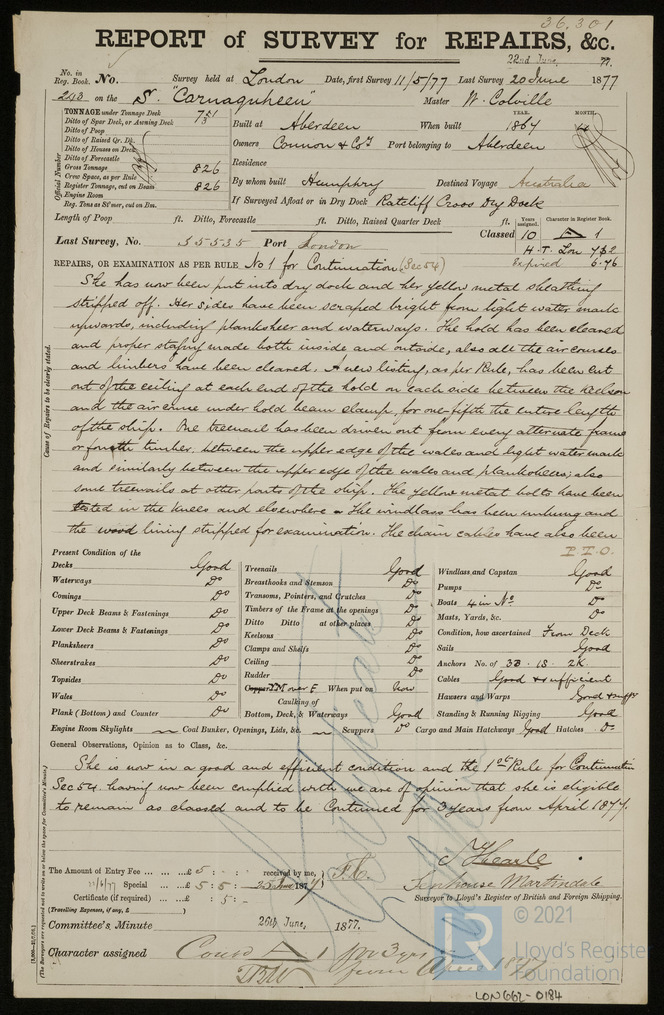 36.301
REPORT of SURVEY for REPAIRS, &c.
22nd June, 77.
No. in Reg. Book. No. Survey held at London Date, first Survey 11/5/77 Last Survey 20 June 1877
243 on the S. "Carnaquheen" Master W. Colville
TONNAGE under Tonnage Deck 751
Ditto of Spar Deck, or Awning Deck
Ditto of Poop
Ditto of Raised Qr. Dk.
Ditto of Houses on Deck
Ditto of Forecastle
Gross Tonnage 826
Crew Space, as per Rule
Register Tonnage, cut on Beam 826
Engine Room
Reg. Tons as St'mer, cut on Bm.
Official Number
Built at Aberdeen When built YEAR. 1867 MONTH.
Owners Connon & Co. Port belonging to Aberdeen
Residence
By whom built Humphrey Destined Voyage Australia
If Surveyed Afloat or in Dry Dock Ratcliff Cross Dry Dock
Length of Poop ft. Ditto, Forecastle ft. Ditto, Raised Quarter Deck ft.
Years assigned. Character in Register Book.
Last Survey, No. 35535 Port London Classed 10 A 1
H.T. Lon 7 & 2
Expired 6.76
REPAIRS, OR EXAMINATION AS PER RULE No 1 for Continuation (Sec 54)
She has now been put into dry dock and her yellow metal sheathing
stripped off. Her sides have been scraped bright from light water mark
upwards, including planksheer and waterways. The hold has been cleared
and proper staging made both inside and outside, also all the air courses
and limbers have been cleared. A new listing, as per Rule, has been cut
out of the ceiling at each end of the hold on each side between the keelson
and the air course under hold beam clamp, for one fifth the entire length
of the ship. One treenail has been driven out from every alternate frame
or fourth timber, between the upper edge of the wales and light water mark
and similarly between the upper edge of the wales and planksheers; also
some treenails at other parts of the ship. The yellow metal bolts have been
tested in the knees and elsewhere. The windlass has been unhung and
the wood lining stripped for examination. The chain cables have also been
P.T.O.
Cause of Repairs to be clearly stated.
Present Condition of the
Decks Good
Waterways Do
Comings Do
Upper Deck Beams & Fastenings Do
Lower Deck Beams & Fastenings Do
Planksheers Do
Sheerstrakes Do
Topsides Do
Wales Do
Plank (Bottom) and Counter Do
Treenails Good
Breasthooks and Stemson Do
Transoms, Pointers, and Crutches Do
Timbers of the Frame at the openings Do
Ditto Ditto at other places Do
Keelsons Do
Clamps and Shelfs Do
Ceiling Do
Rudder Do
YM over F When put on Now
Caulking of
Bottom, Deck, & Waterways Good
Windlass and Capstan Good
Pumps Do
Boats 4 in No. Do
Masts, Yards, &c. Do
Condition, how ascertained From Deck
Sails Good
Anchors No. of 3B. 1S. 2K.
Cables Good & sufficient
Hawsers and Warps Good & suff
Standing & Running Rigging Good
Engine Room Skylights Coal Bunker, Openings, Lids, &c. Scuppers Do Cargo and Main Hatchways Good Hatches Do
General Observations, Opinion as to Class, &c.
She is now in a good and efficient condition and the 1st Rule for Continuation
Sec 54. having now been complied with we are of opinion that she is eligible
to remain as classed and to be Continued for 3 years from April 1877.
J Hearle
The Amount of Entry Fee ... £ 5 : : received by me,
Special ... £ 5 : 5 : 25 June 1877
Certificate (if required) ... £ : 5 : -
(Travelling Expenses, if any, £ )
Fenhouse Martindale
Surveyor to Lloyd's Register of British and Foreign Shipping.
Committee's Minute 26th June, 1877.
Character assigned Contd A 1 for 3 yrs
from April 1877
(The Surveyors are requested not to write on or below the space for Committee's Minute.)
© 2021
Lloyd's Register
Foundation
LON662-0184